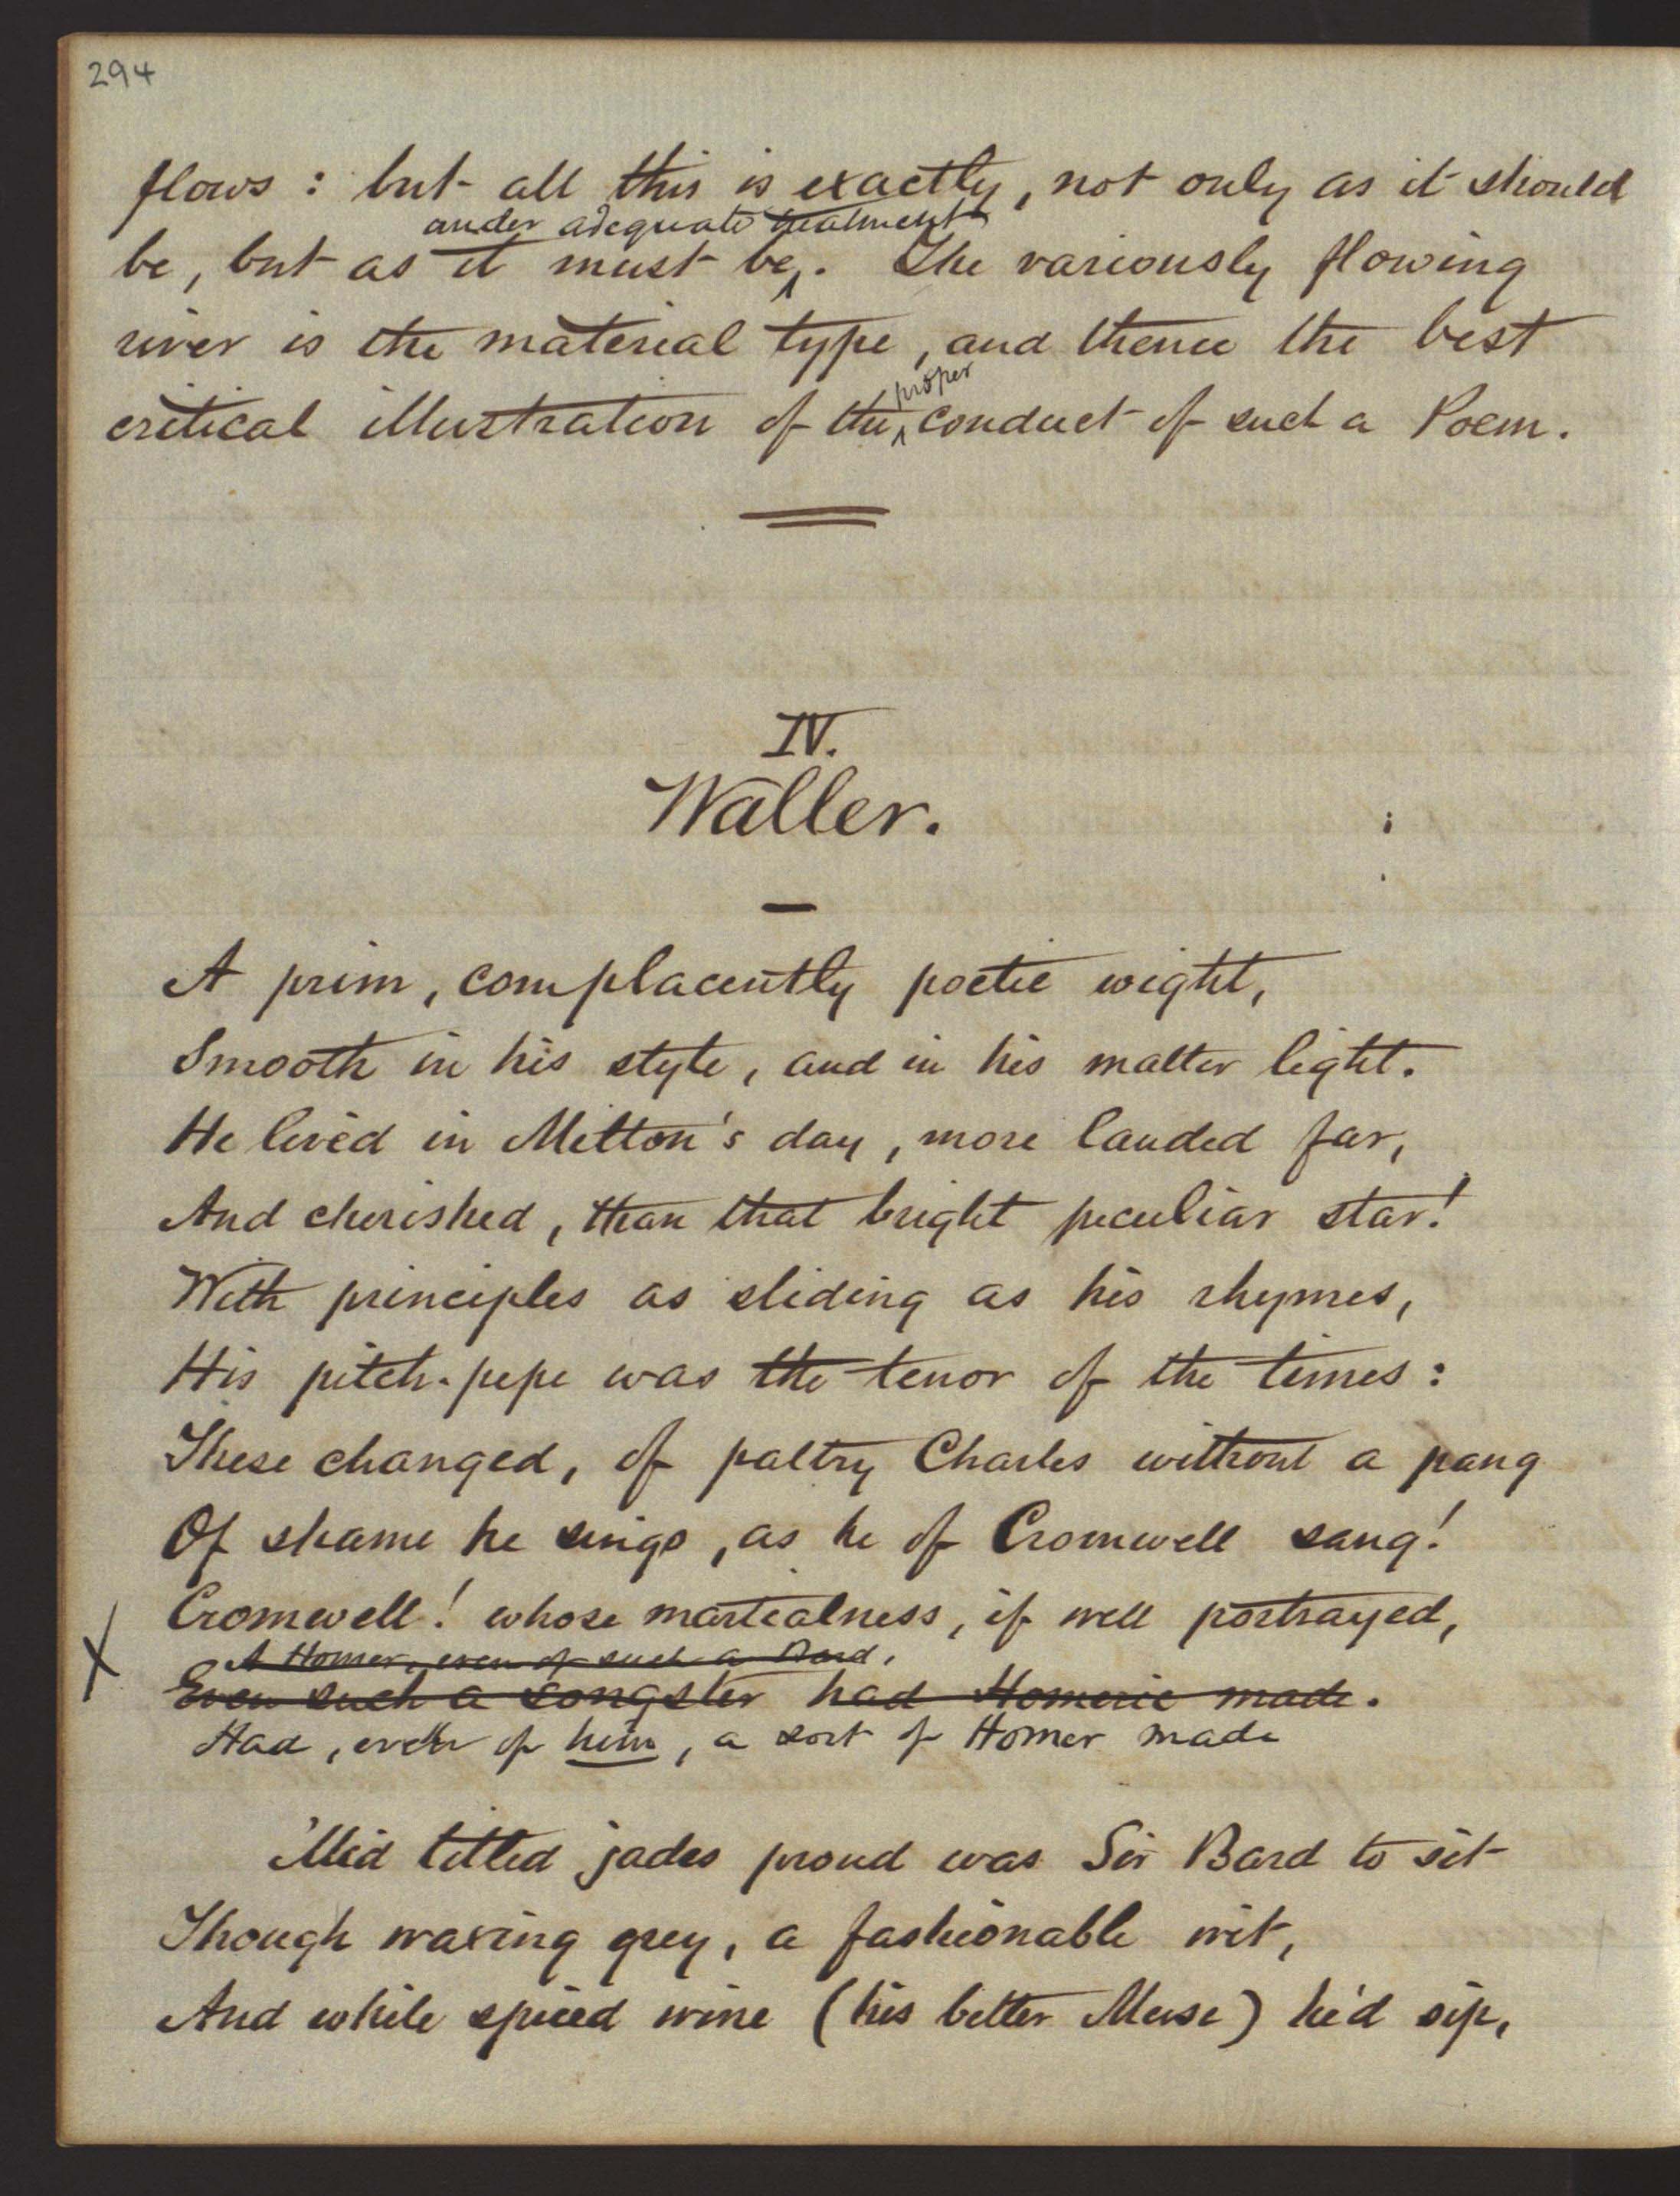 294
flows : but all this is exactly, not only as it should
under adequate treatment
be, but as it must be. The variously flowing
river is the material type, and thence the best
proper
critical illustration of the conduct of such a Poem.
IV.
Waller.
A prim, complacently poetic wight,
Smooth in his style, and in his matter light.
He lived in Milton's day, more lauded far,
And cherished, than that bright peculiar star!
With principles as sliding as his rhymes,
His pitch-pipe was the tenor of the times :
These changed, of paltry Charles without a pang
Of shame he sings, as he of Cromwell sang!
Cromwell! whose martialness, if well portrayed,
A Homer, even of such a Bard,
X Even such a songster had Homeric made.
Had, even of him, a sort of Homer made
'Mid titled jades proud was Sir Bard to sit
Though waxing grey, a fashionable wit,
And while spiced wine (his better Muse) he'd sip,